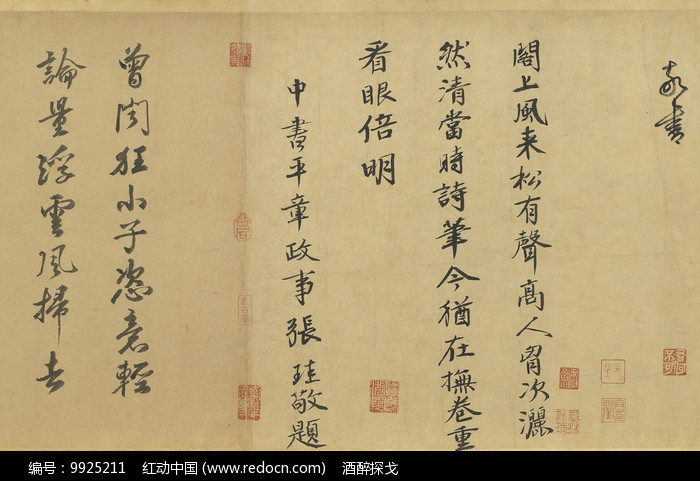 敬書
閣上風来松有聲高人胷次灑
然清當時詩筆今猶在撫卷重
看眼倍明
中書平章政事張珪敬題
曾聞狂小子恣意輕
論量浮雲風掃去
编号：9925211 红动中国 (www.redocn.com) 酒醉探戈